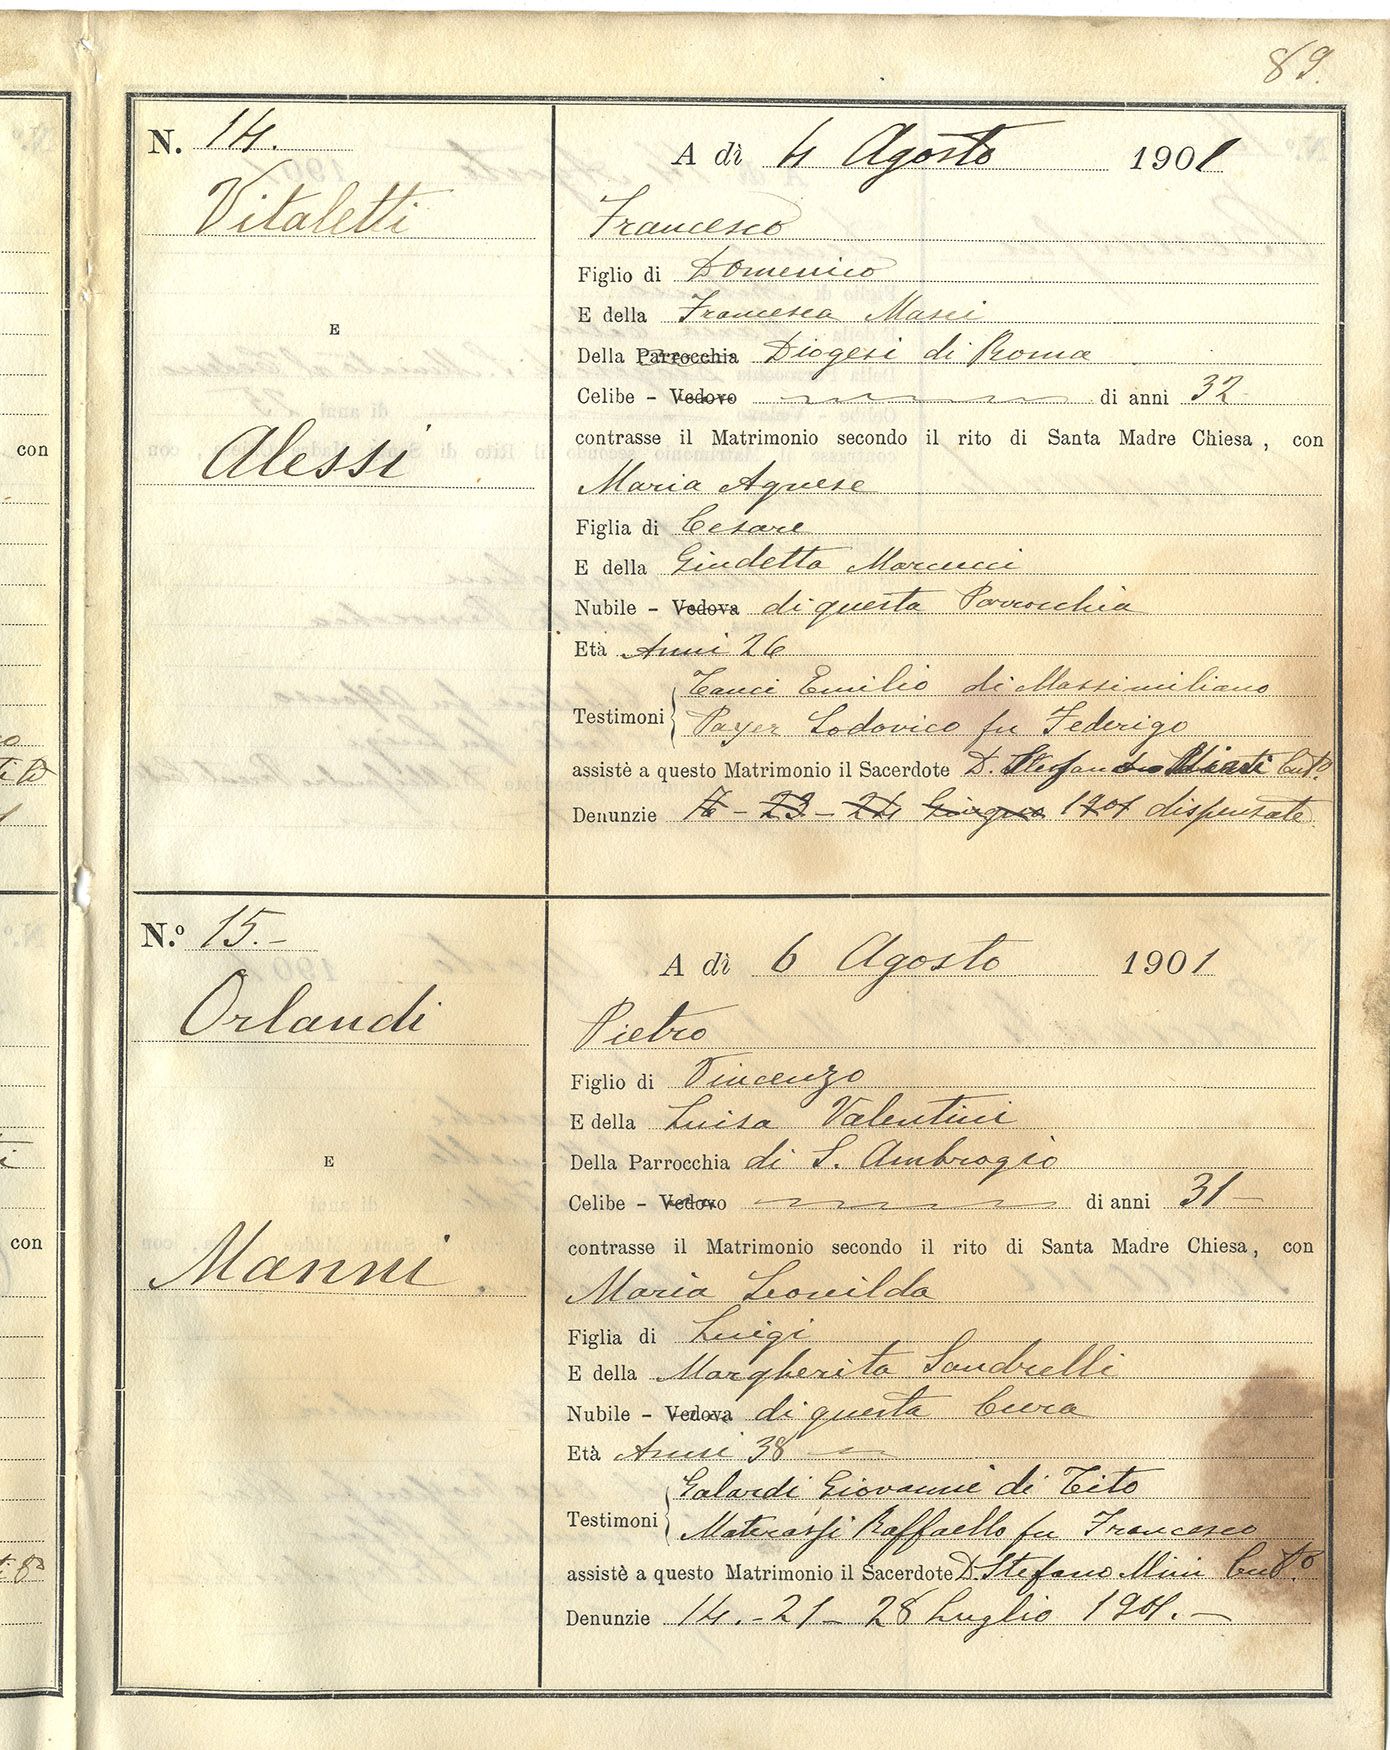 89.
N. 14.
Vitaletti
E
Alessi
A dì 4 Agosto 1901
Francesco
Figlio di Domenico
E della Francesca Masci
Della Parrocchia Diogesi di Roma
Celibe - Vedovo di anni 32
contrasse il Matrimonio secondo il rito di Santa Madre Chiesa, con
Maria Agnese
Figlia di Cesare
E della Giudetta Marcucci
Nubile - Vedova di questa Parrocchia
Età Anni 26
Tanci Emilio di Massimiliano
Testimoni Payer Lodovico fu Federigo
assistè a questo Matrimonio il Sacerdote D. Stefano
Denunzie 23 - 24 Giugno 1901 dispensate
N.º 15.-
Orlandi
E
Manni.
A dì 6 Agosto 1901
Pietro
Figlio di Vincenzo
E della Luisa Valentini
Della Parrocchia di S. Ambrogio
Celibe - Vedovo di anni 31-
contrasse il Matrimonio secondo il rito di Santa Madre Chiesa, con
Maria Leonilda
Figlia di Luigi
E della Margherita Sandrelli
Nubile - Vedova di questa Cura
Età Anni 38
Galardi Giovanni di Tito
Testimoni Materassi Raffaello fu Francesco
assistè a questo Matrimonio il Sacerdote D. Stefano Mini Cur.to
Denunzie 14.-21-28 Luglio 1901.-
con
con